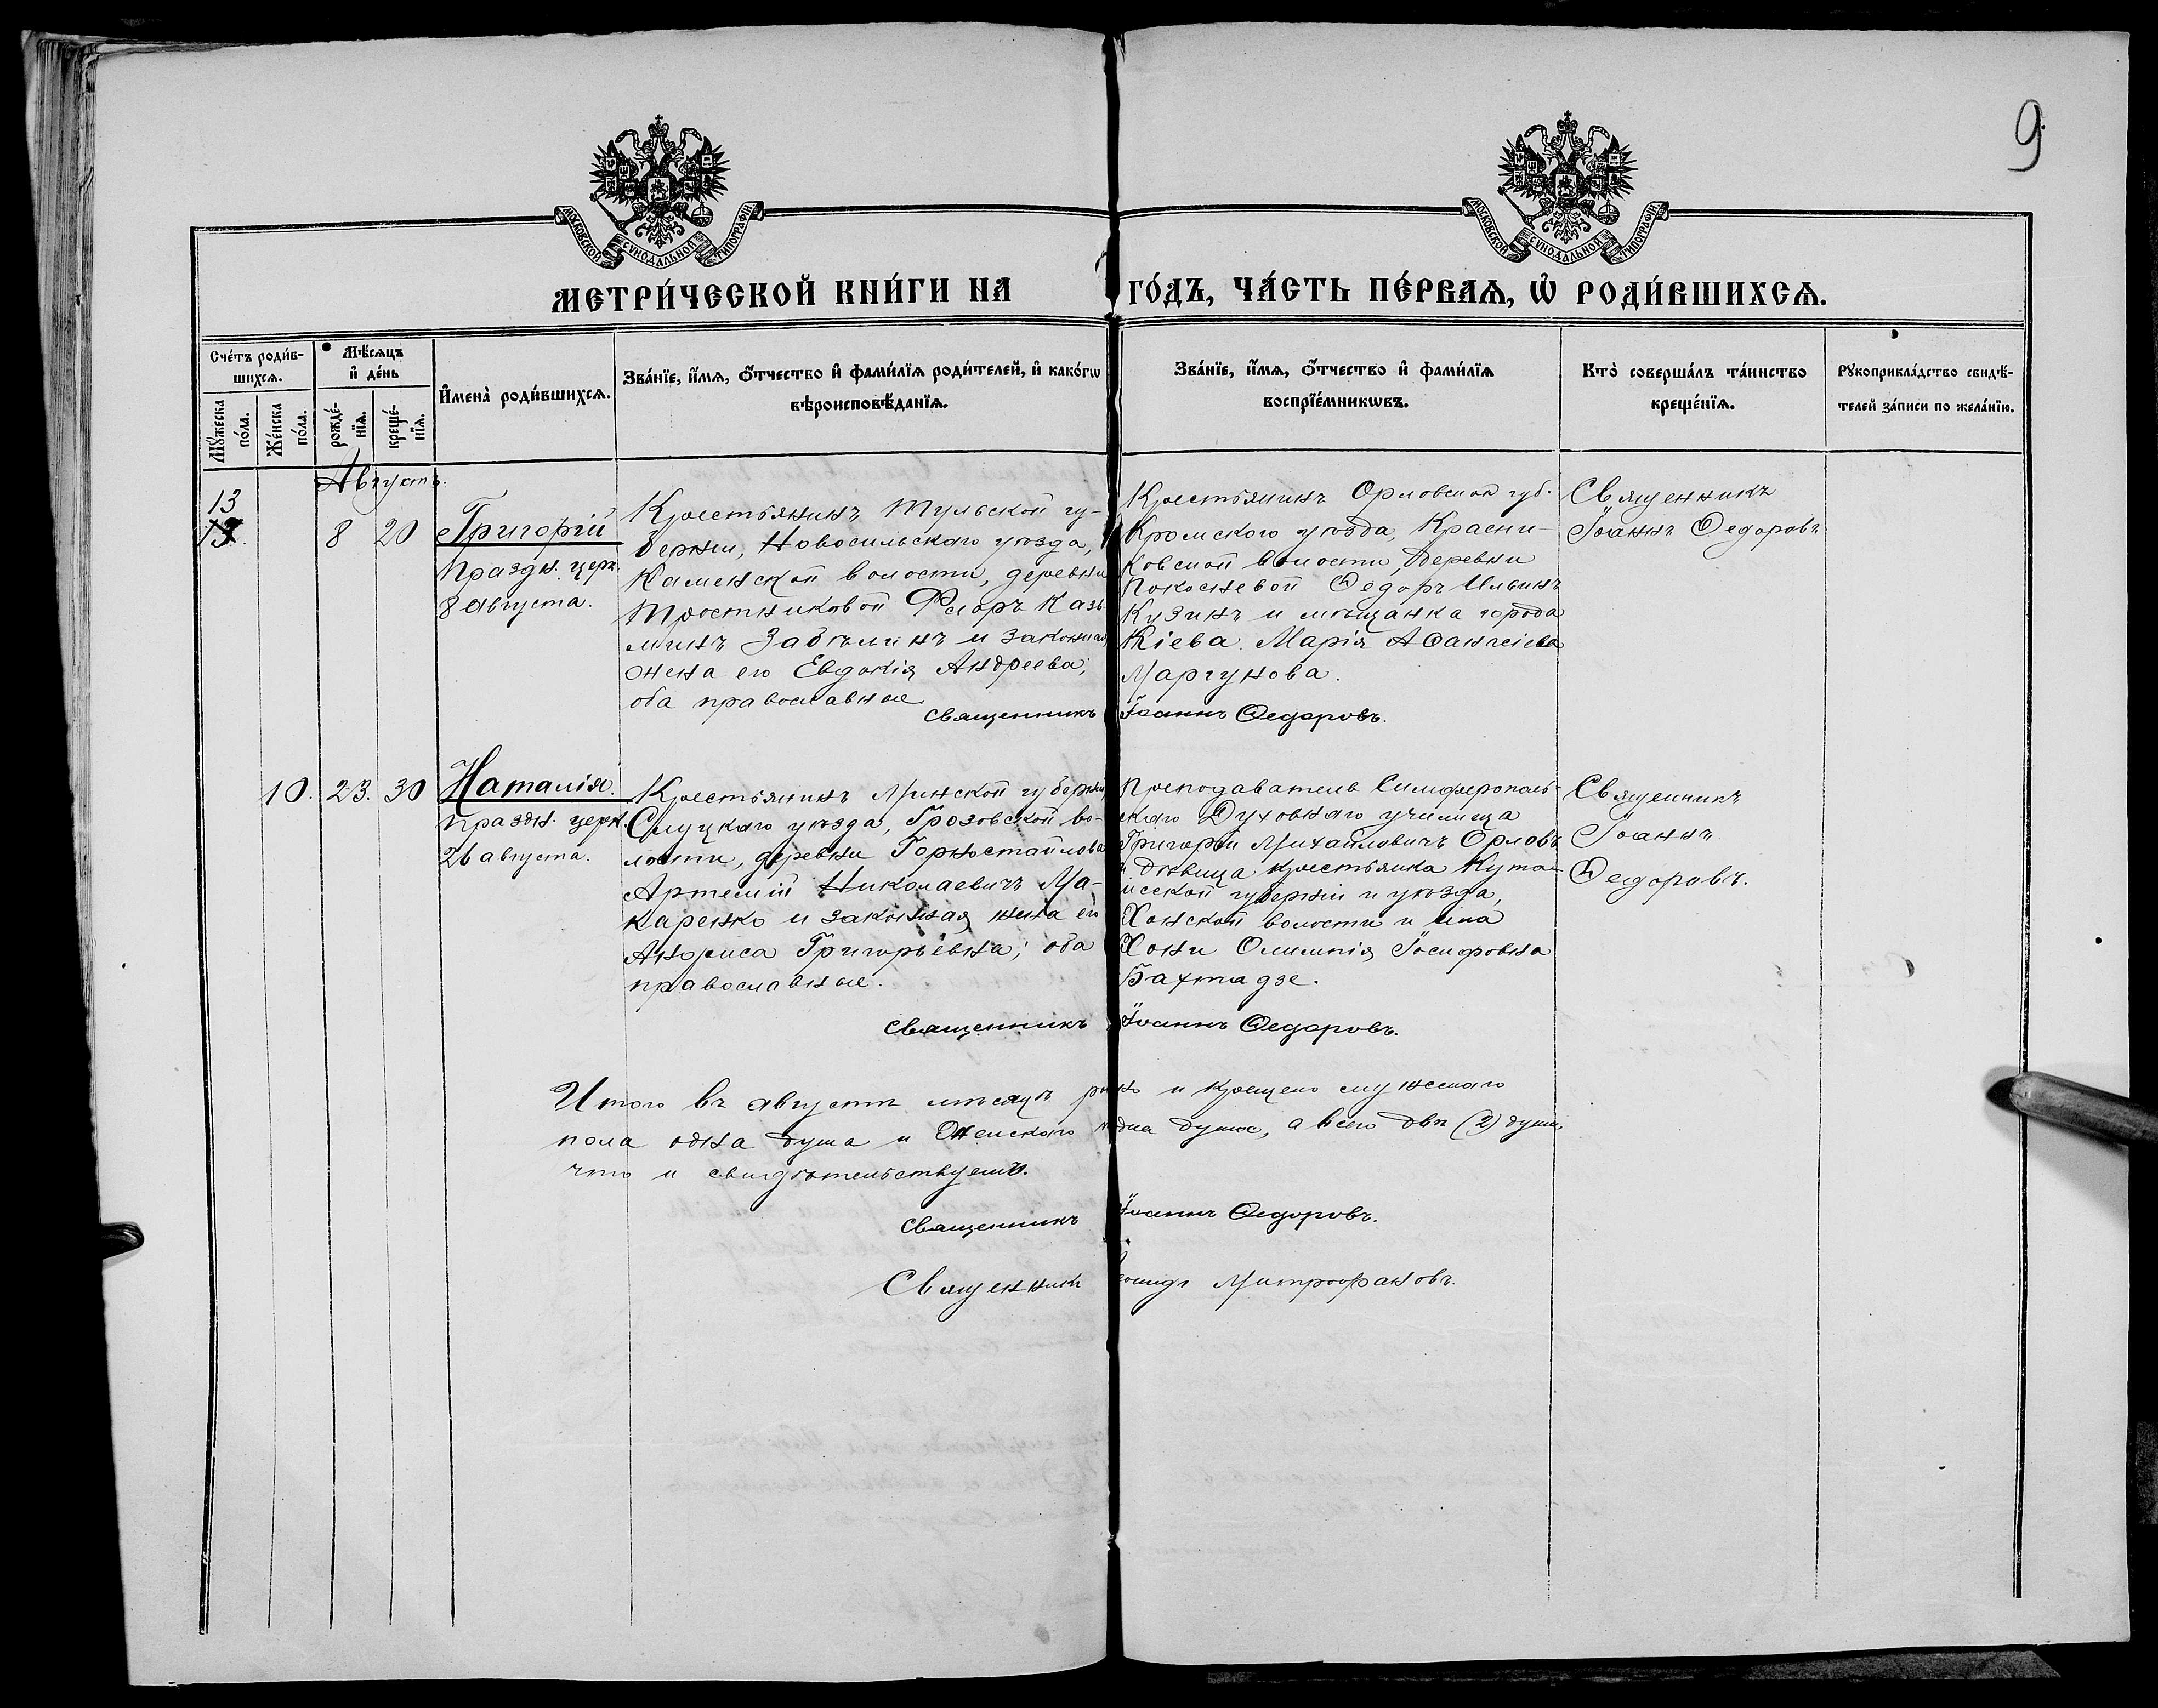 9
МОСКОВСКОЙ СѴНОДАЛЬНОЙ ТИПОГРАФІИ
МОСКОВСКОЙ СѴНОДАЛЬНОЙ ТИПОГРАФІИ
МЕТРИ́ЧЕСКОЙ КНИ́ГИ НА ГО́ДЪ, ЧА́СТЬ ПЕ́РВАѦ, Ѡ҆ РОДИ́ВШИХСѦ.
Сче́тъ роди́в-
шихсѧ.
Мѣ́сѧцъ
и҆ де́нь
И҆мена̀ роди́вшихсѧ.
Зва́нїе, и҆́мѧ, ѻ҆́тчество и҆ фами́лїѧ роди́телей, и҆ како́гѡ
вѣроисповѣ́данїѧ.
Зва́нїе, и҆́мѧ, ѻ҆́тчество и҆ фами́лїѧ
воспрїе́мникѡвъ.
Кто̀ соверша́лъ та́инство
креще́нїѧ.
Рꙋкоприкла́дство свидѣ́-
телей за́писи по жела́нїю.
Мꙋ́жеска
по́ла.
Же́нска
по́ла.
рожде́-
нїѧ.
креще́-
нїѧ.
Августъ.
13
8 20
Григорій
Праздн. церк.
8 августа.
Крестьянинъ Тульской гу-
берніи, Новосильскаго уѣзда,
Каменской волости, деревни
Тростниковой Флоръ Казь-
минъ Забѣлинъ и законная
жена его Евдокія Андреева;
оба православные
Крестьянинъ Орловской губ.
Кромского уѣзда, Красни-
ковской волости, деревни
Покосневой Ѳедоръ Ильинъ
Кузинъ и мѣщанка города
Кіева Марія Аѳанасіева
Маргунова.
Священникъ
Іоаннъ Ѳедоровъ
Священникъ Іоаннъ Ѳедоровъ.
10. 23. 30
Наталія.
Праздн. церк.
26 августа.
Крестьянинъ Минской губерніи
Слуцкаго уѣзда, Грозовской во-
лости, деревни Горностайлова
Артемій Николаевичъ Ма-
каренко и законная жена его
Анфиса Григорьевна; оба
православные.
Преподаватель Симферополь-
скаго Духовнаго училища
Григорій Михайловичъ Орловъ
и дѣвица крестьянка Кута-
исской губерніи и уѣзда,
Хонской волости и села
Хони Олимпія Іосифовна
Бахтадзе.
Священникъ
Іоаннъ
Ѳедоровъ.
Священникъ Іоаннъ Ѳедоровъ.
Итого въ августѣ мѣсяцѣ и крещено мужескаго
пола одна душа и женскаго одна душа, а всего двѣ (2) души,
что и свидѣтельствуемъ.
Священникъ Іоаннъ Ѳедоровъ.
Священникъ Митрофановъ.